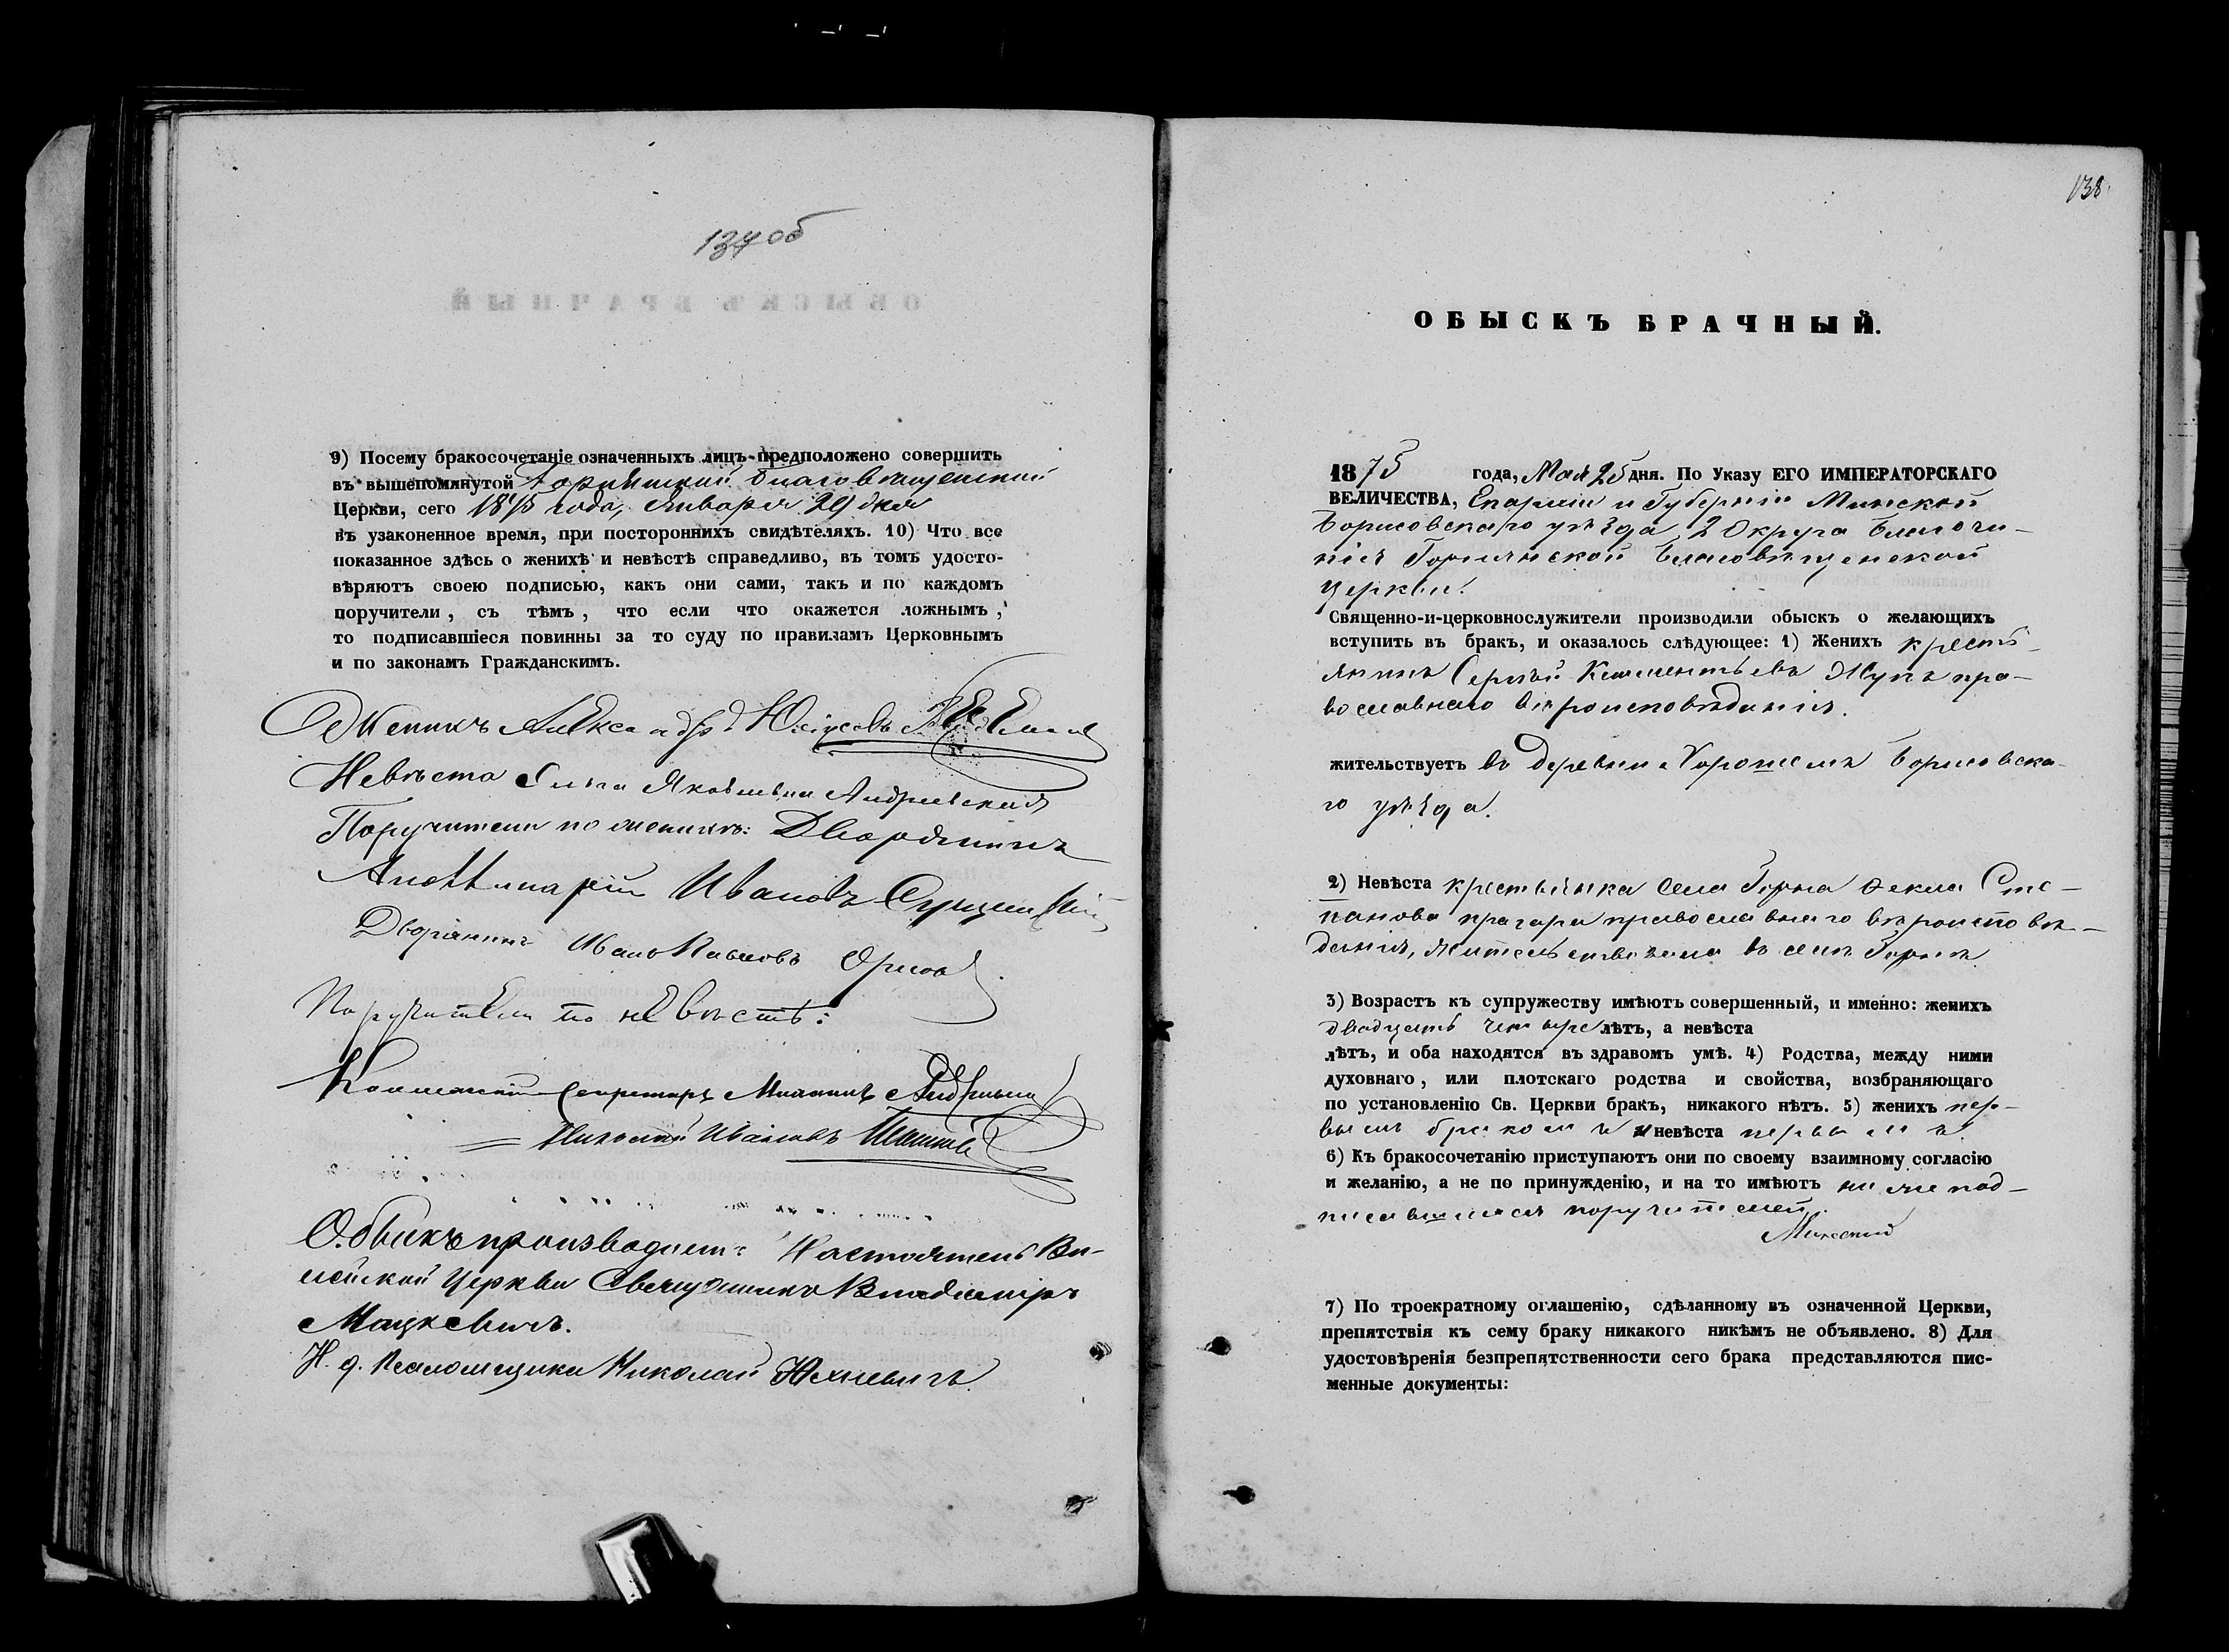 137об
9) Посему бракосочетаніе означенныхъ лицъ предположено совершить
въ вышепомянутой Благовѣщенской
Церкви, сего 1875 года, Января 29 дня
въ узаконенное время, при постороннихъ свидѣтеляхъ. 10) Что все
показанное здѣсь о женихѣ и невѣстѣ справедливо, въ томъ удосто-
вѣряютъ своею подписью, какъ они сами, такъ и по каждомъ
поручители, съ тѣмъ, что если что окажется ложнымъ,
то подписавшіеся повинны за то суду по правиламъ Церковнымъ
и по законамъ Гражданскимъ.
Женихъ
Невѣста Ольга Яковлевна Андреевская
Поручители по женихѣ: Дворянинъ
Ивановъ
Дворянинъ Иванъ
Поручители по невѣстѣ:
Секретарь
Николай Ивановъ
Обыскъ производилъ Настоятель Ви-
лейской Церкви Священникъ Владиміръ
Мацкевичъ.
И. д. Псаломщика Николай
138
ОБЫСКЪ БРАЧНЫЙ.
1875 года, Мая 25 дня. По Указу ЕГО ИМПЕРАТОРСКАГО
ВЕЛИЧЕСТВА, Епархіи и Губерніи Минской
Борисовскаго уѣзда, 2 Округа Благочи-
нія Благовѣщенской
Церкви.
Священно-и-церковнослужители производили обыскъ о желающихъ
вступить въ бракъ, и оказалось слѣдующее: 1) Женихъ кресть-
янинъ Сергѣй Климентьевъ Жукъ пра-
вославнаго вѣроисповѣданія.
жительствуетъ въ деревни Борисовска-
го уѣзда.
2) Невѣста крестьянка села Горна Ѳекла Сте-
панова православнаго вѣроисповѣ-
данія, въ селѣ
3) Возрастъ къ супружеству имѣютъ совершенный, и именно: женихъ
двадцать четыре лѣтъ, а невѣста
лѣтъ, и оба находятся въ здравомъ умѣ. 4) Родства, между ними
духовнаго, или плотскаго родства и свойства, возбраняющаго
по установленію Св. Церкви бракъ, никакого нѣтъ. 5) женихъ пер-
вымъ бракомъ и невѣста первымъ.
6) Къ бракосочетанію приступаютъ они по своему взаимному согласію
и желанію, а не по принужденію, и на то имѣютъ под-
писавшихся поручителей.
7) По троекратному оглашенію, сдѣланному въ означенной Церкви,
препятствія къ сему браку никакого никѣмъ не объявлено. 8) Для
удостовѣренія безпрепятственности сего брака представляются пис-
менные документы: